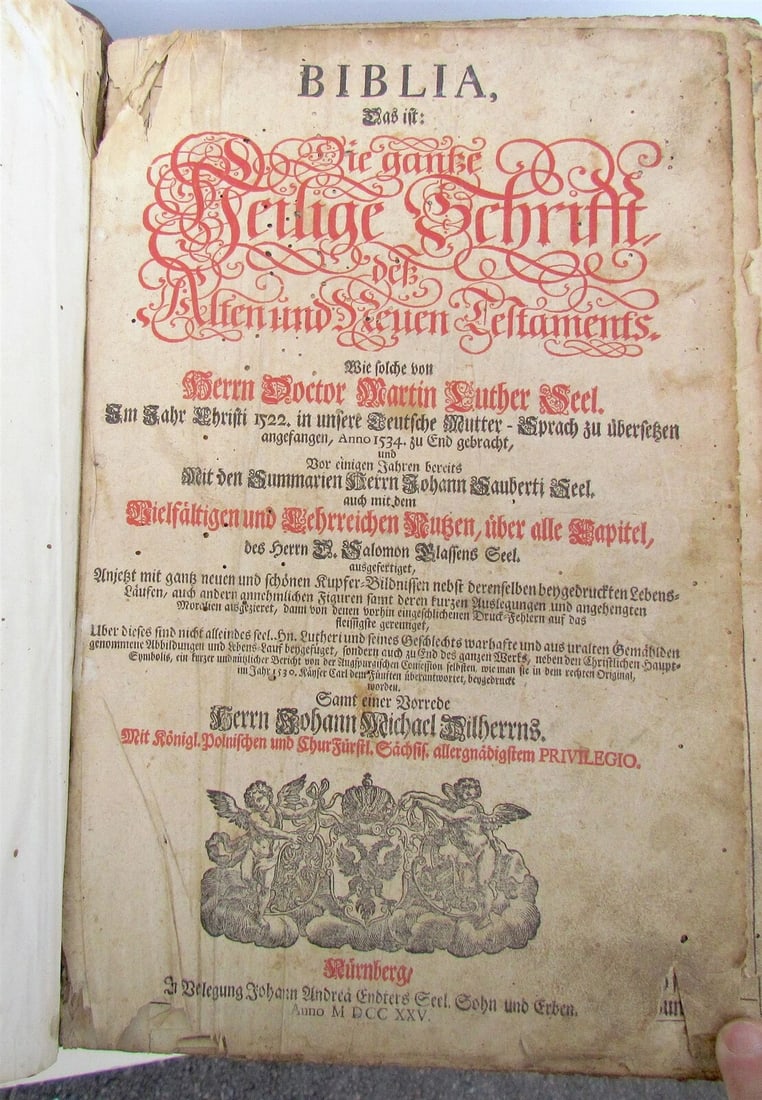 BIBLIA,
Das ist:
Die gantze
Heilige Schrifft,
deß
Alten und Neuen Testaments.
Wie solche von
Herrn Doctor Martin Luther Seel.
Im Jahr Christi 1522. in unsere Teutsche Mutter-Sprach zu übersetzen
angefangen, Anno 1534. zu End gebracht,
und
Vor einigen Jahren bereits
Mit den Summarien Herrn Johann Sauberti Seel.
auch mit dem
Vielfältigen und Lehrreichen Nutzen, über alle Capitel,
des Herrn D. Salomon Glassens Seel.
ausgefertiget,
Anjetzt mit gantz neuen und schönen Kupfer-Bildnissen nebst derenselben beygedruckten Lebens-
Läufen, auch andern annehmlichen Figuren samt deren kurzen Auslegungen und angehengten
Moralien ausgezieret, dann von denen vorhin eingeschlichenen Druck-Fehlern auf das
fleissigste gereiniget,
Uber dieses sind nicht allein des seel. Hn. Lutheri und seines Geschlechts warhafte und aus uralten Gemählden
genommene Abbildungen und Lebens-Lauf beygefüget, sondern auch zu End des ganzen Werks, neben den Christlichen Haupt-
Symbolis, ein kurzer und nützlicher Bericht von der Augspurgischen Confession selbsten, wie man sie in dem rechten Original,
im Jahr 1530. Käyser Carl dem Fünften überantwortet, beygedruckt
worden.
Samt einer Vorrede
Herrn Johann Michael Dilherrns.
Mit Königl. Polnischen und ChurFürstl. Sächsis. allergnädigstem PRIVILEGIO.
Nürnberg/
In Verlegung Johann Andreä Endters Seel. Sohn und Erben.
Anno M DCC XXV.